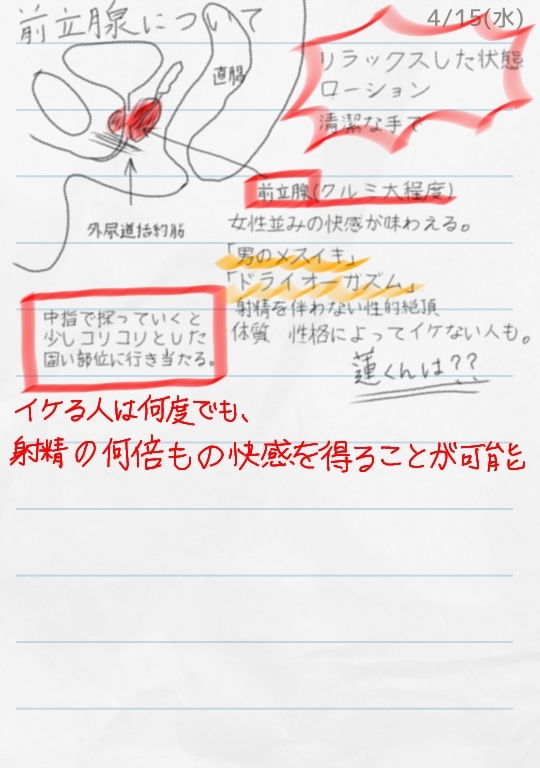 前立腺について
4/15(水)
リラックスした状態
ローション
清潔な手で
直腸
前立腺(クルミ大程度)
外尿道括約筋
女性並みの快感が味わえる。
「男のメスイキ」
「ドライオーガズム」
射精を伴わない性的絶頂
体質 性格によってイケない人も。
中指で探っていくと
少しコリコリとした
固い部位に行き当たる。
蓮くんは??
イケる人は何度でも、
射精の何倍もの快感を得ることが可能